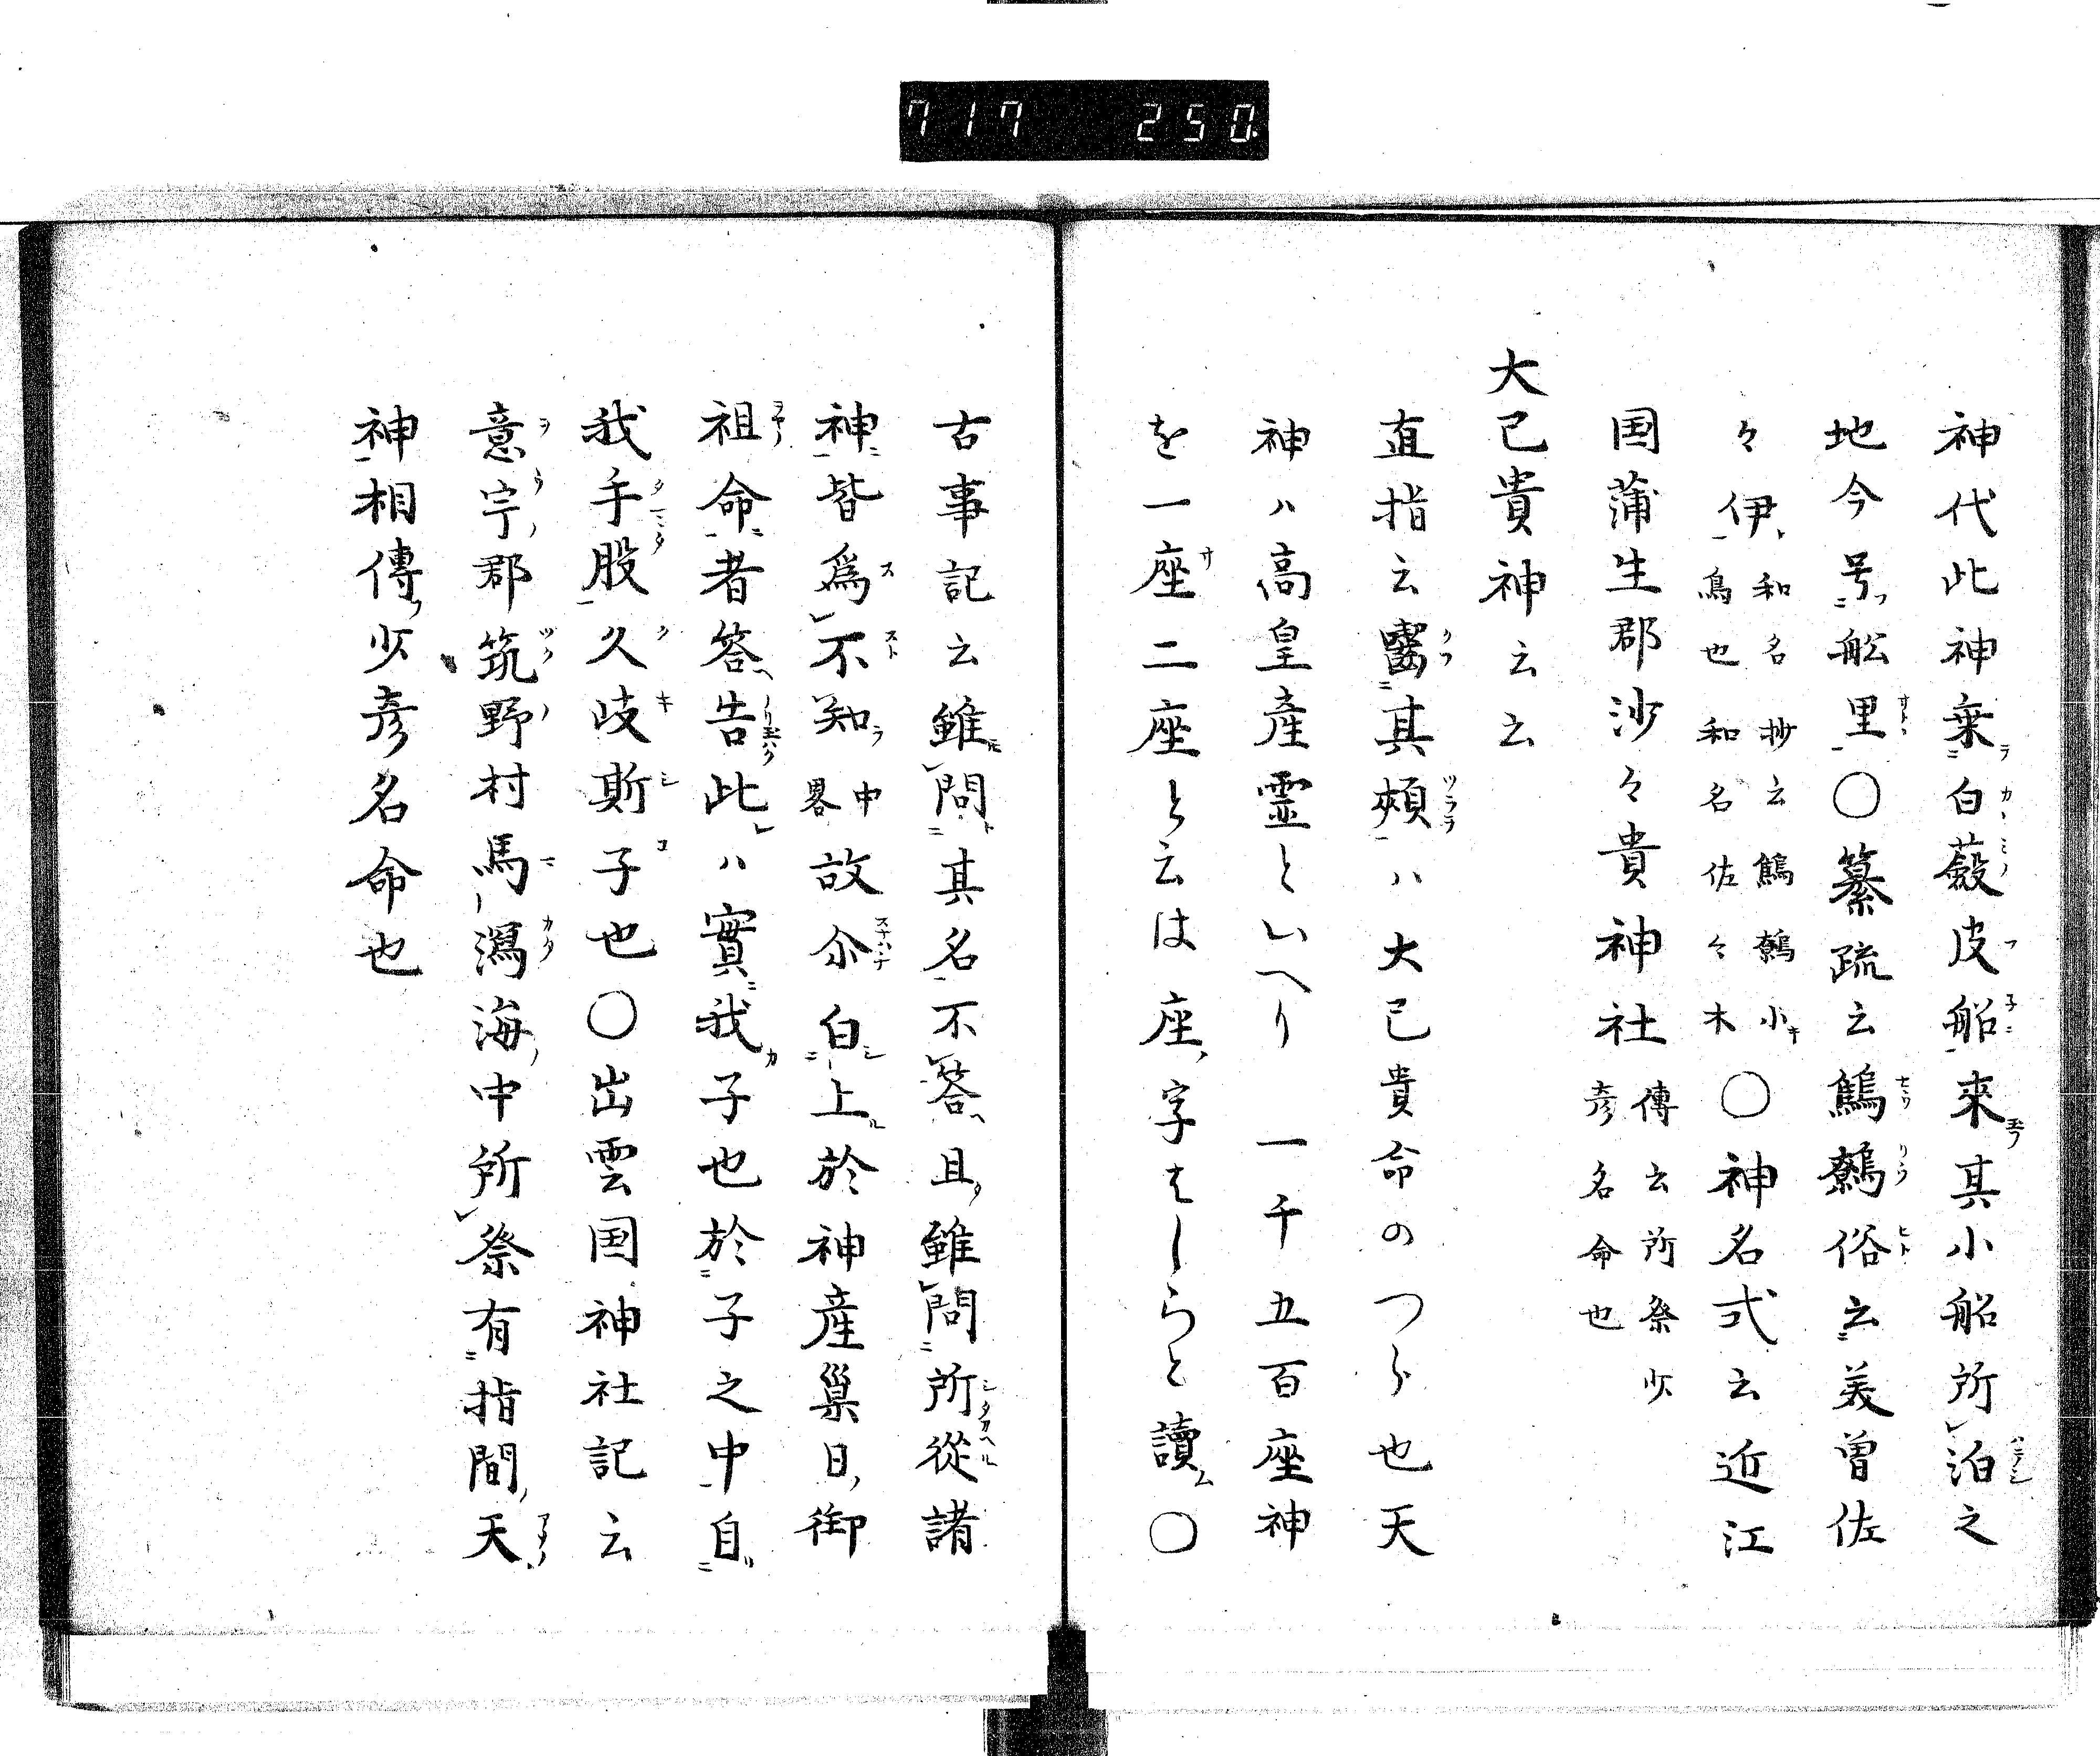 717 250
神代此神乗白蘞皮船來其小船所泊之
地今号舩里〇纂疏云鷦鷯俗云美曽佐
々伊和名抄云鷦鷯小鳥也和名佐々木〇神名式云近江
国蒲生郡沙々貴神社傳云所祭少彦名命也
大己貴神云云
直指云囓其頰ハ大己貴命のつら也天
神ハ高皇産霊といへり 一千五百座神
を一座二座と云は座字はしらと讀〇
古事記云雖問其名不答且雖問所從諸
神皆爲不知中畧故尒白上於神産巣日御
祖命者答告此ハ實我子也於子之中自
我手股久岐斯子也〇出雲国神社記云
意宇郡筑野村馬潟海中所祭有指間天
神相傳少彦名命也